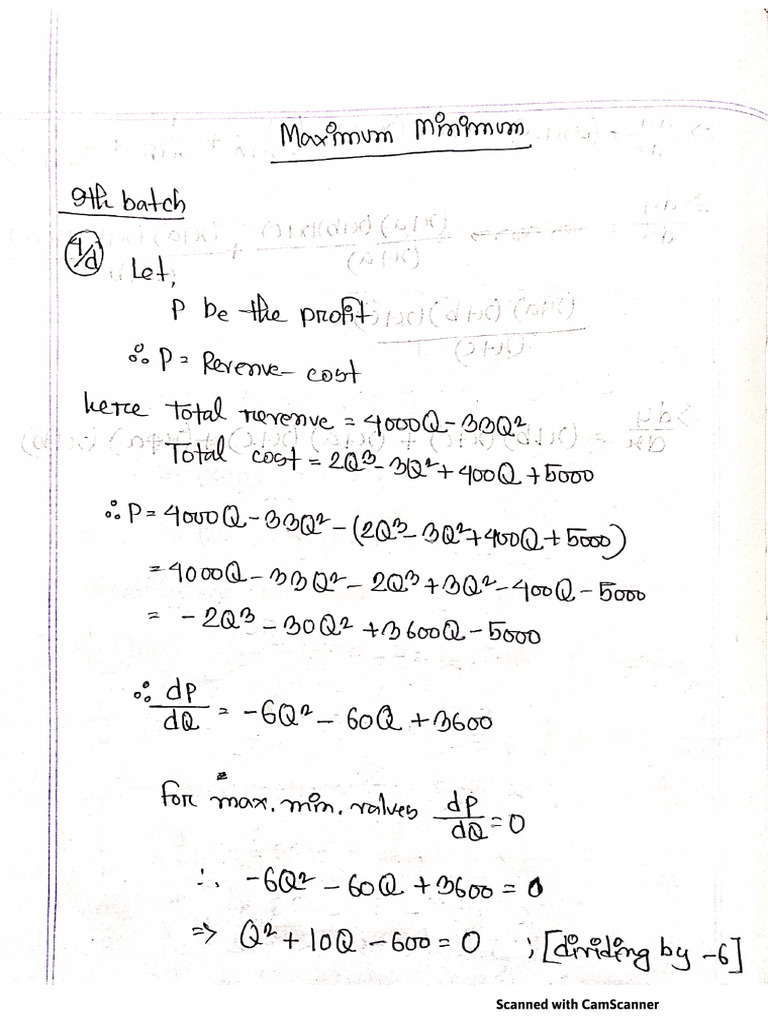 Maximum Minimum
9th batch
1/d Let,
P be the profit
∴ P = Revenue - cost
here total revenue = 4000Q - 33Q²
Total cost = 2Q³ - 3Q² + 400Q + 5000
∴ P = 4000Q - 33Q² - (2Q³ - 3Q² + 400Q + 5000)
= 4000Q - 33Q² - 2Q³ + 3Q² - 400Q - 5000
= -2Q³ - 30Q² + 3600Q - 5000
∴ dP/dQ = -6Q² - 60Q + 3600
for max. min. values dP/dQ = 0
∴ -6Q² - 60Q + 3600 = 0
⇒ Q² + 10Q - 600 = 0 ; [dividing by -6]
Scanned with CamScanner